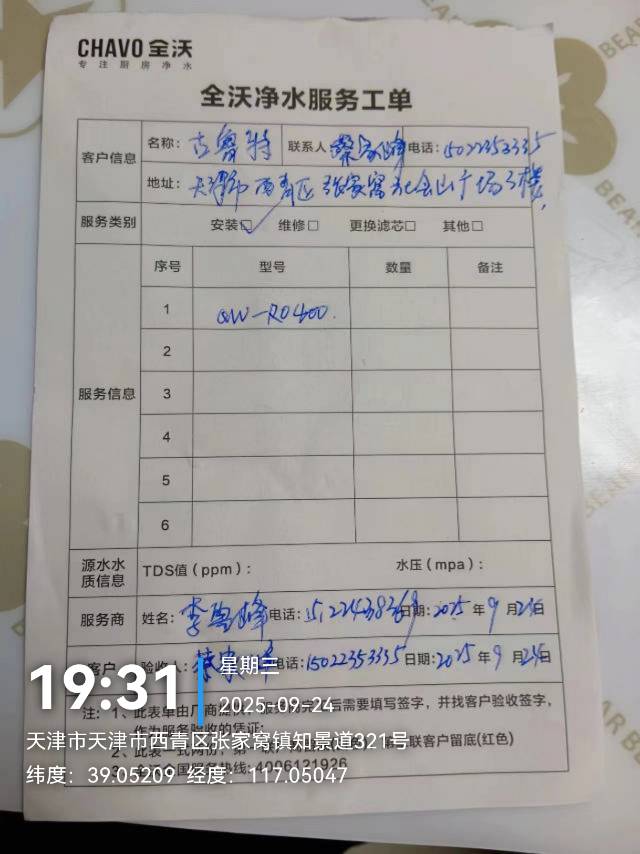 CHAVO 全沃
专注厨房净水
全沃净水服务工单
客户信息
名称：古鲁特 联系人 电话：15022353335
地址：天津市西青区张家窝社会山广场3楼
服务类别 安装☑ 维修□ 更换滤芯□ 其他□
服务信息
序号 型号 数量 备注
1 QW-RO400.
2
3
4
5
6
源水水质信息 TDS值（ppm）： 水压（mpa）：
服务商 姓名：李 峰 电话： 日期：2025年9月24日
客户 验收人： 电话：15022353335 日期：2025年9月24日
注：1、此表单由厂商提供 服务 后需要填写签字，并找客户验收签字，
作为服务验收的凭证；
2、此表一式两份，第一 联客户留底(红色)
3 国服务热线：4006121926
19:31
星期三
2025-09-24
天津市天津市西青区张家窝镇知景道321号
纬度：39.05209 经度：117.05047
BEAR
BEAR
BEAR
BEAR B